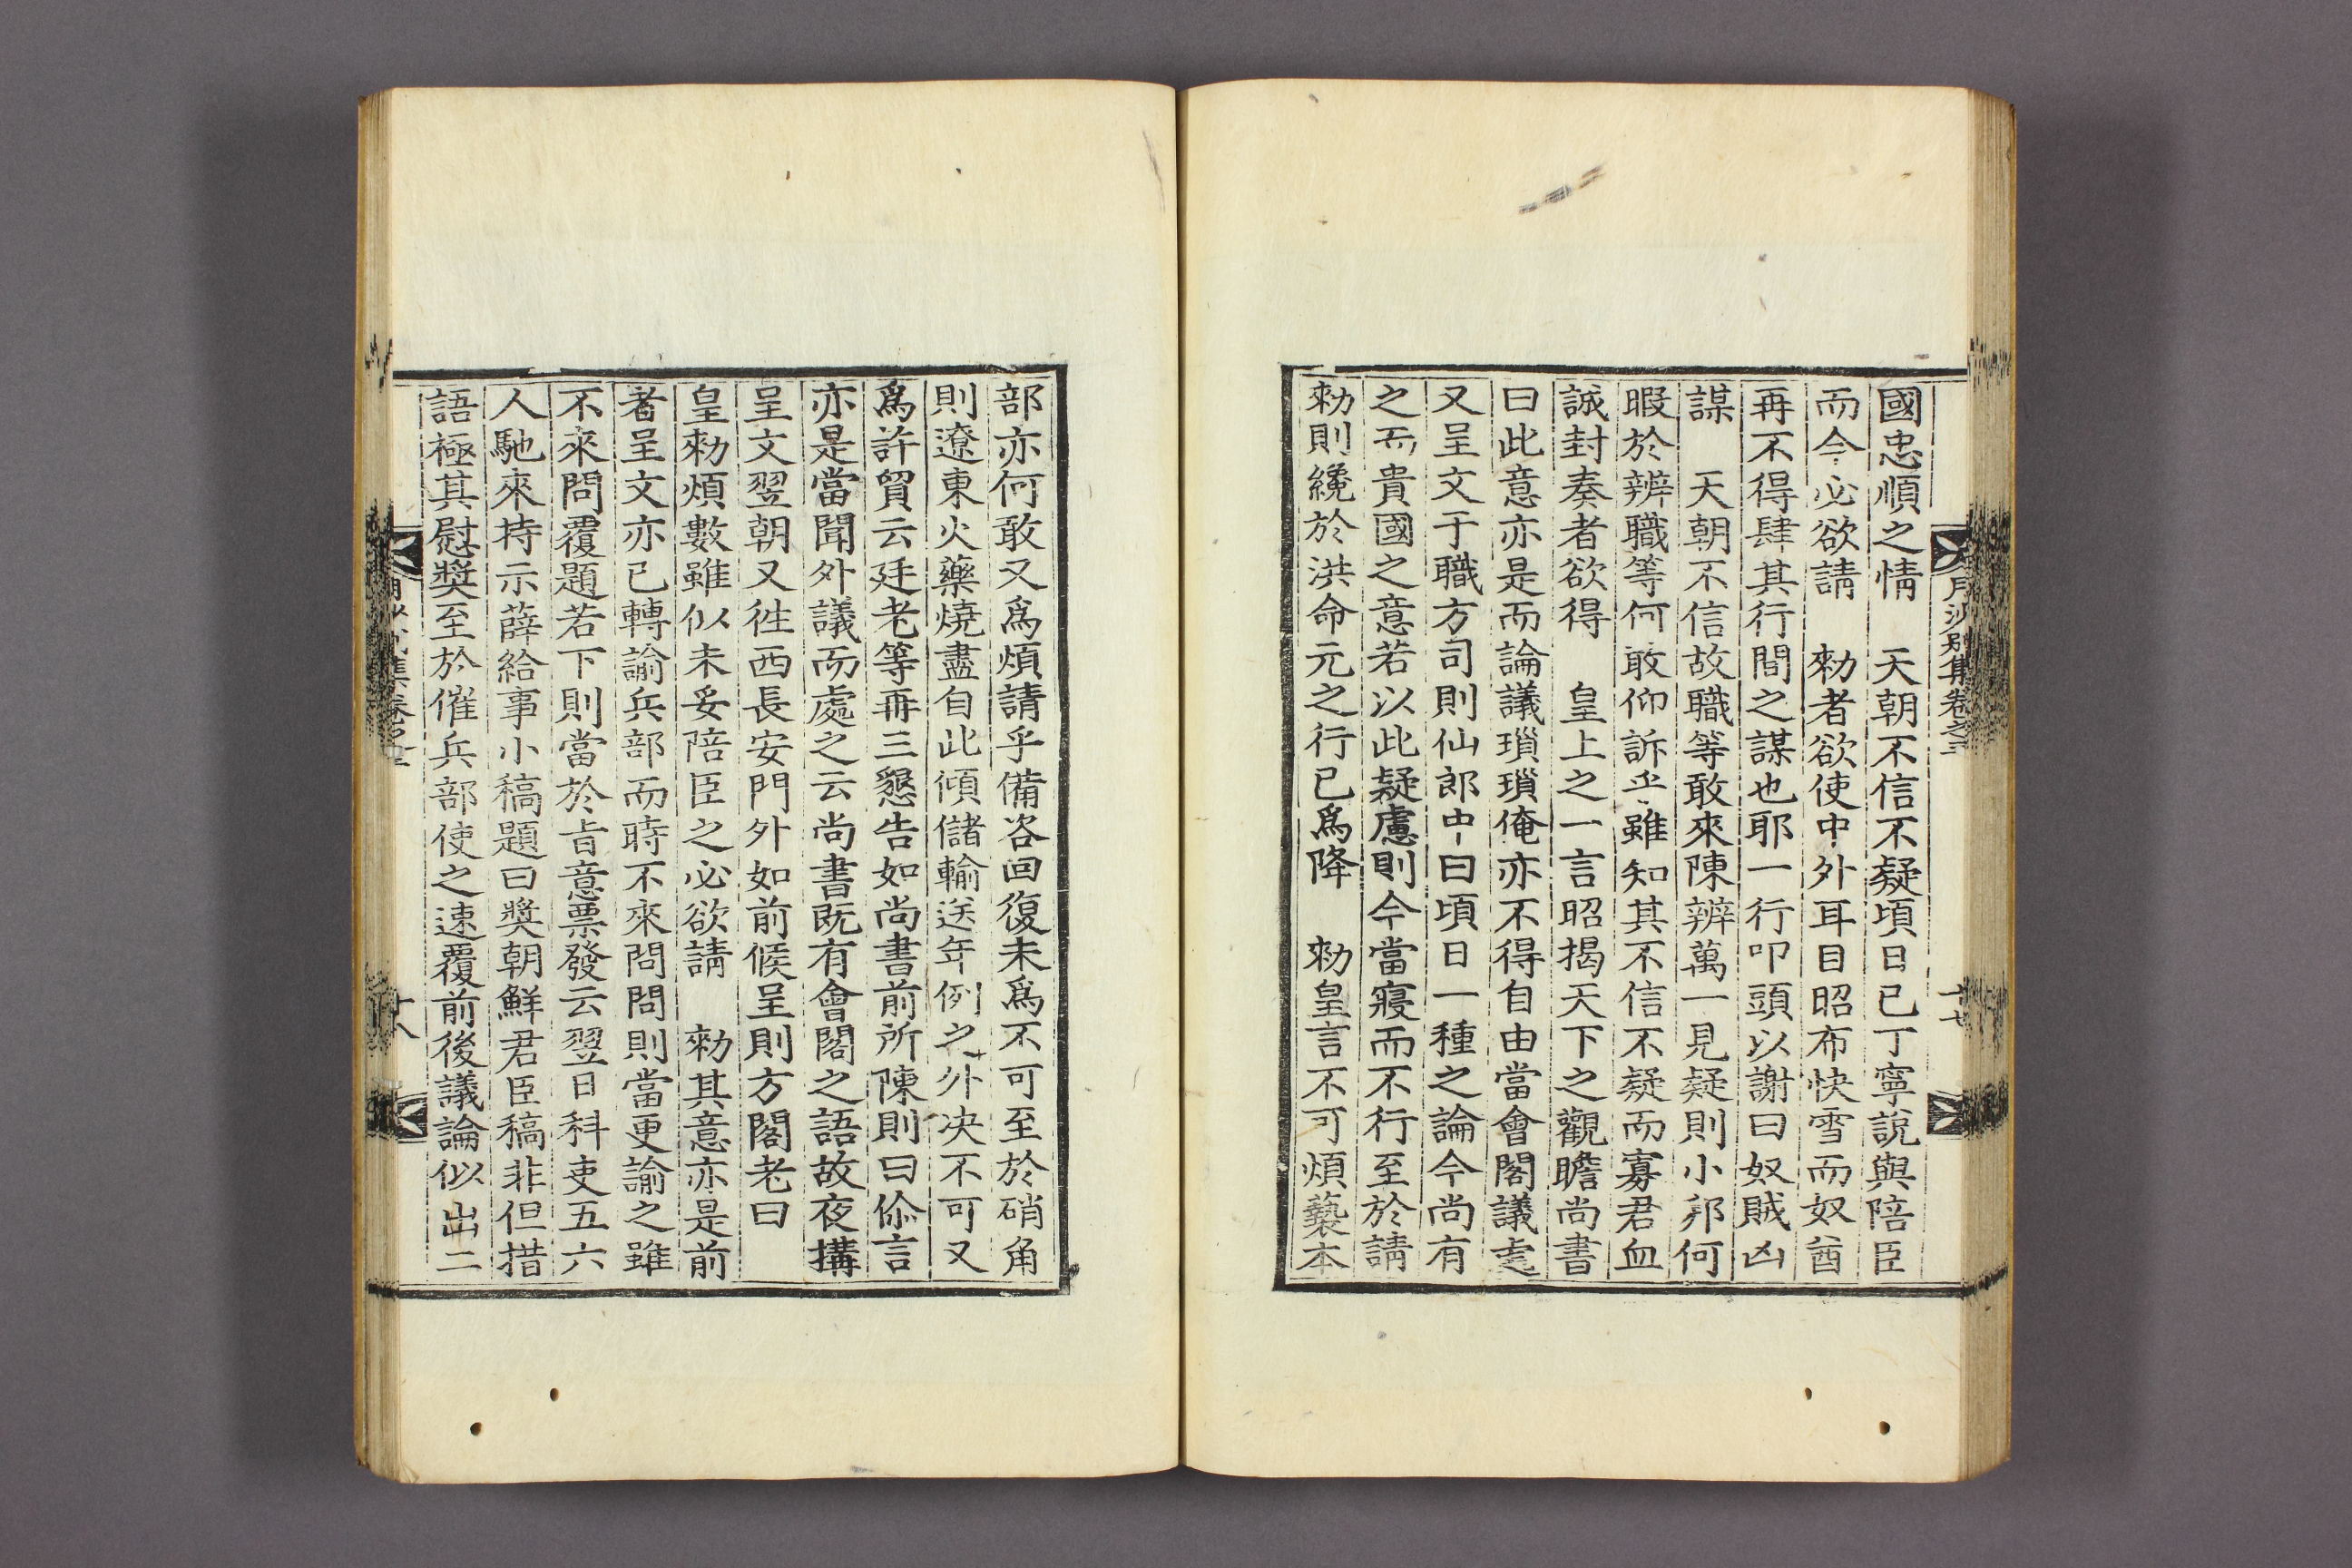 月沙別集卷之三
十七
國忠順之情　天朝不信不疑頃日已丁寧說與陪臣
而今必欲請　勑者欲使中外耳目昭布快雪而奴酋
再不得肆其行間之謀也耶一行叩頭以謝曰奴賊凶
謀　天朝不信故職等敢來陳辨萬一見疑則小邦何
暇於辨職等何敢仰訴乎雖知其不信不疑而寡君血
誠封奏者欲得　皇上之一言昭揭天下之觀瞻尚書
曰此意亦是而論議瑣瑣俺亦不得自由當會閣議處
又呈文于職方司則仙郎中曰頃日一種之論今尚有
之而貴國之意若以此疑慮則今當寢而不行至於請
勑則纔於洪命元之行已爲降　勑皇言不可煩褻本
部亦何敢又爲煩請乎備咨回復未爲不可至於硝角
則遼東火藥燒盡自此傾儲輸送年例之外决不可又
爲許貿云廷老等再三懇告如尚書前所陳則曰伱言
亦是當聞外議而處之云尚書旣有會閣之語故夜搆
呈文翌朝又徃西長安門外如前候呈則方閣老曰
皇勑煩數雖似未妥陪臣之必欲請　勑其意亦是前
者呈文亦已轉諭兵部而時不來問問則當更諭之雖
不來問覆題若下則當於㫖意票發云翌日科吏五六
人馳來持示薛給事小稿題曰奬朝鮮君臣稿非但措
語極其慰奬至於催兵部使之速覆前後議論似出二
集卷之三
十八